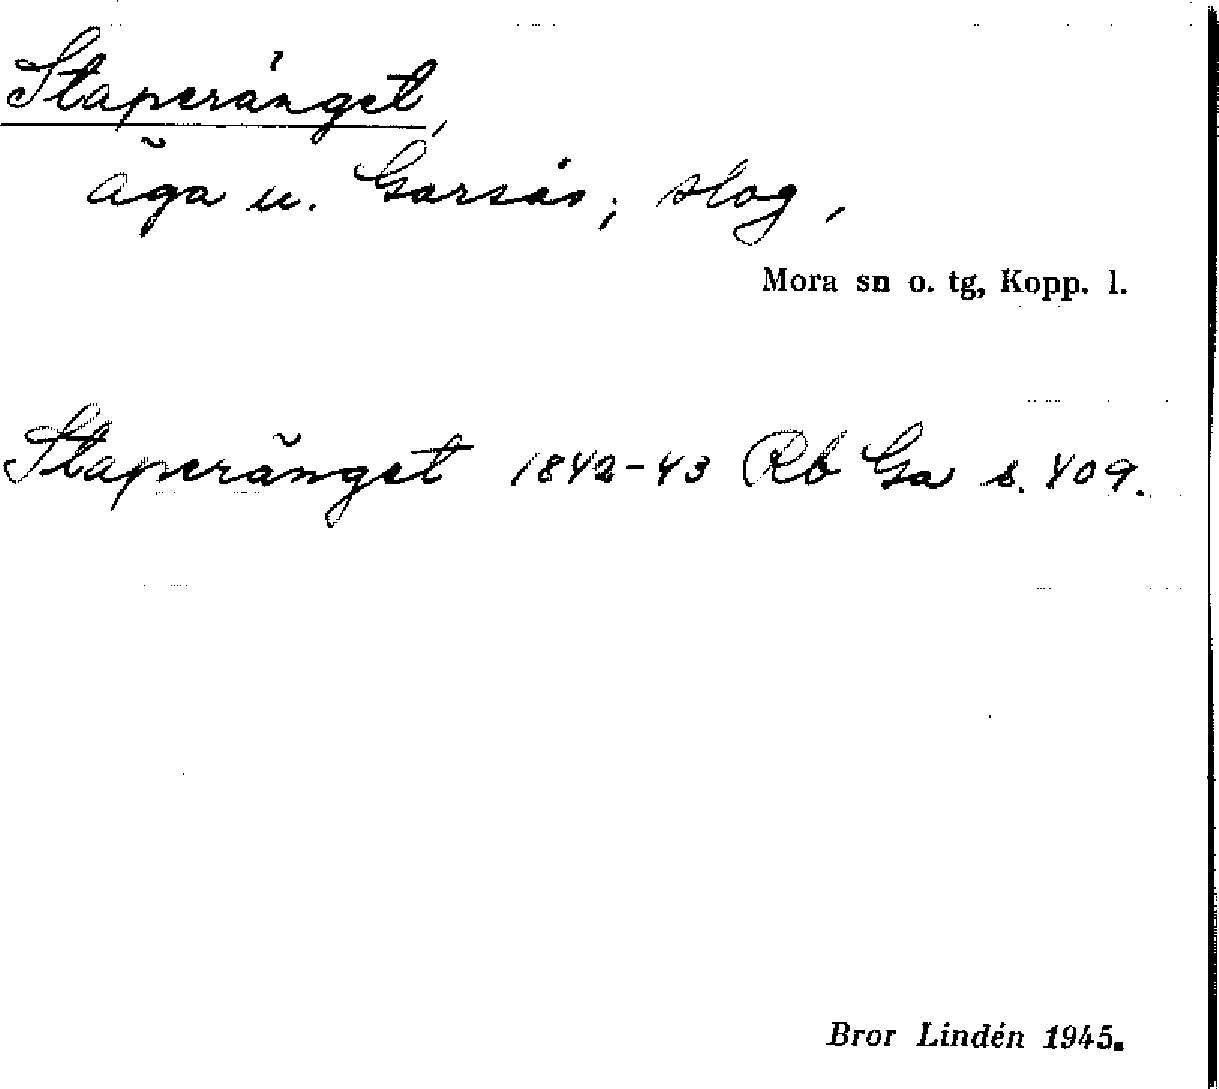 Staperänget,
äga u. Garsås; slog,
Mora sn o. tg, Kopp. l.
Staperänget 1842-43 Rb Ga s. 409.
Bror Lindén 1945.